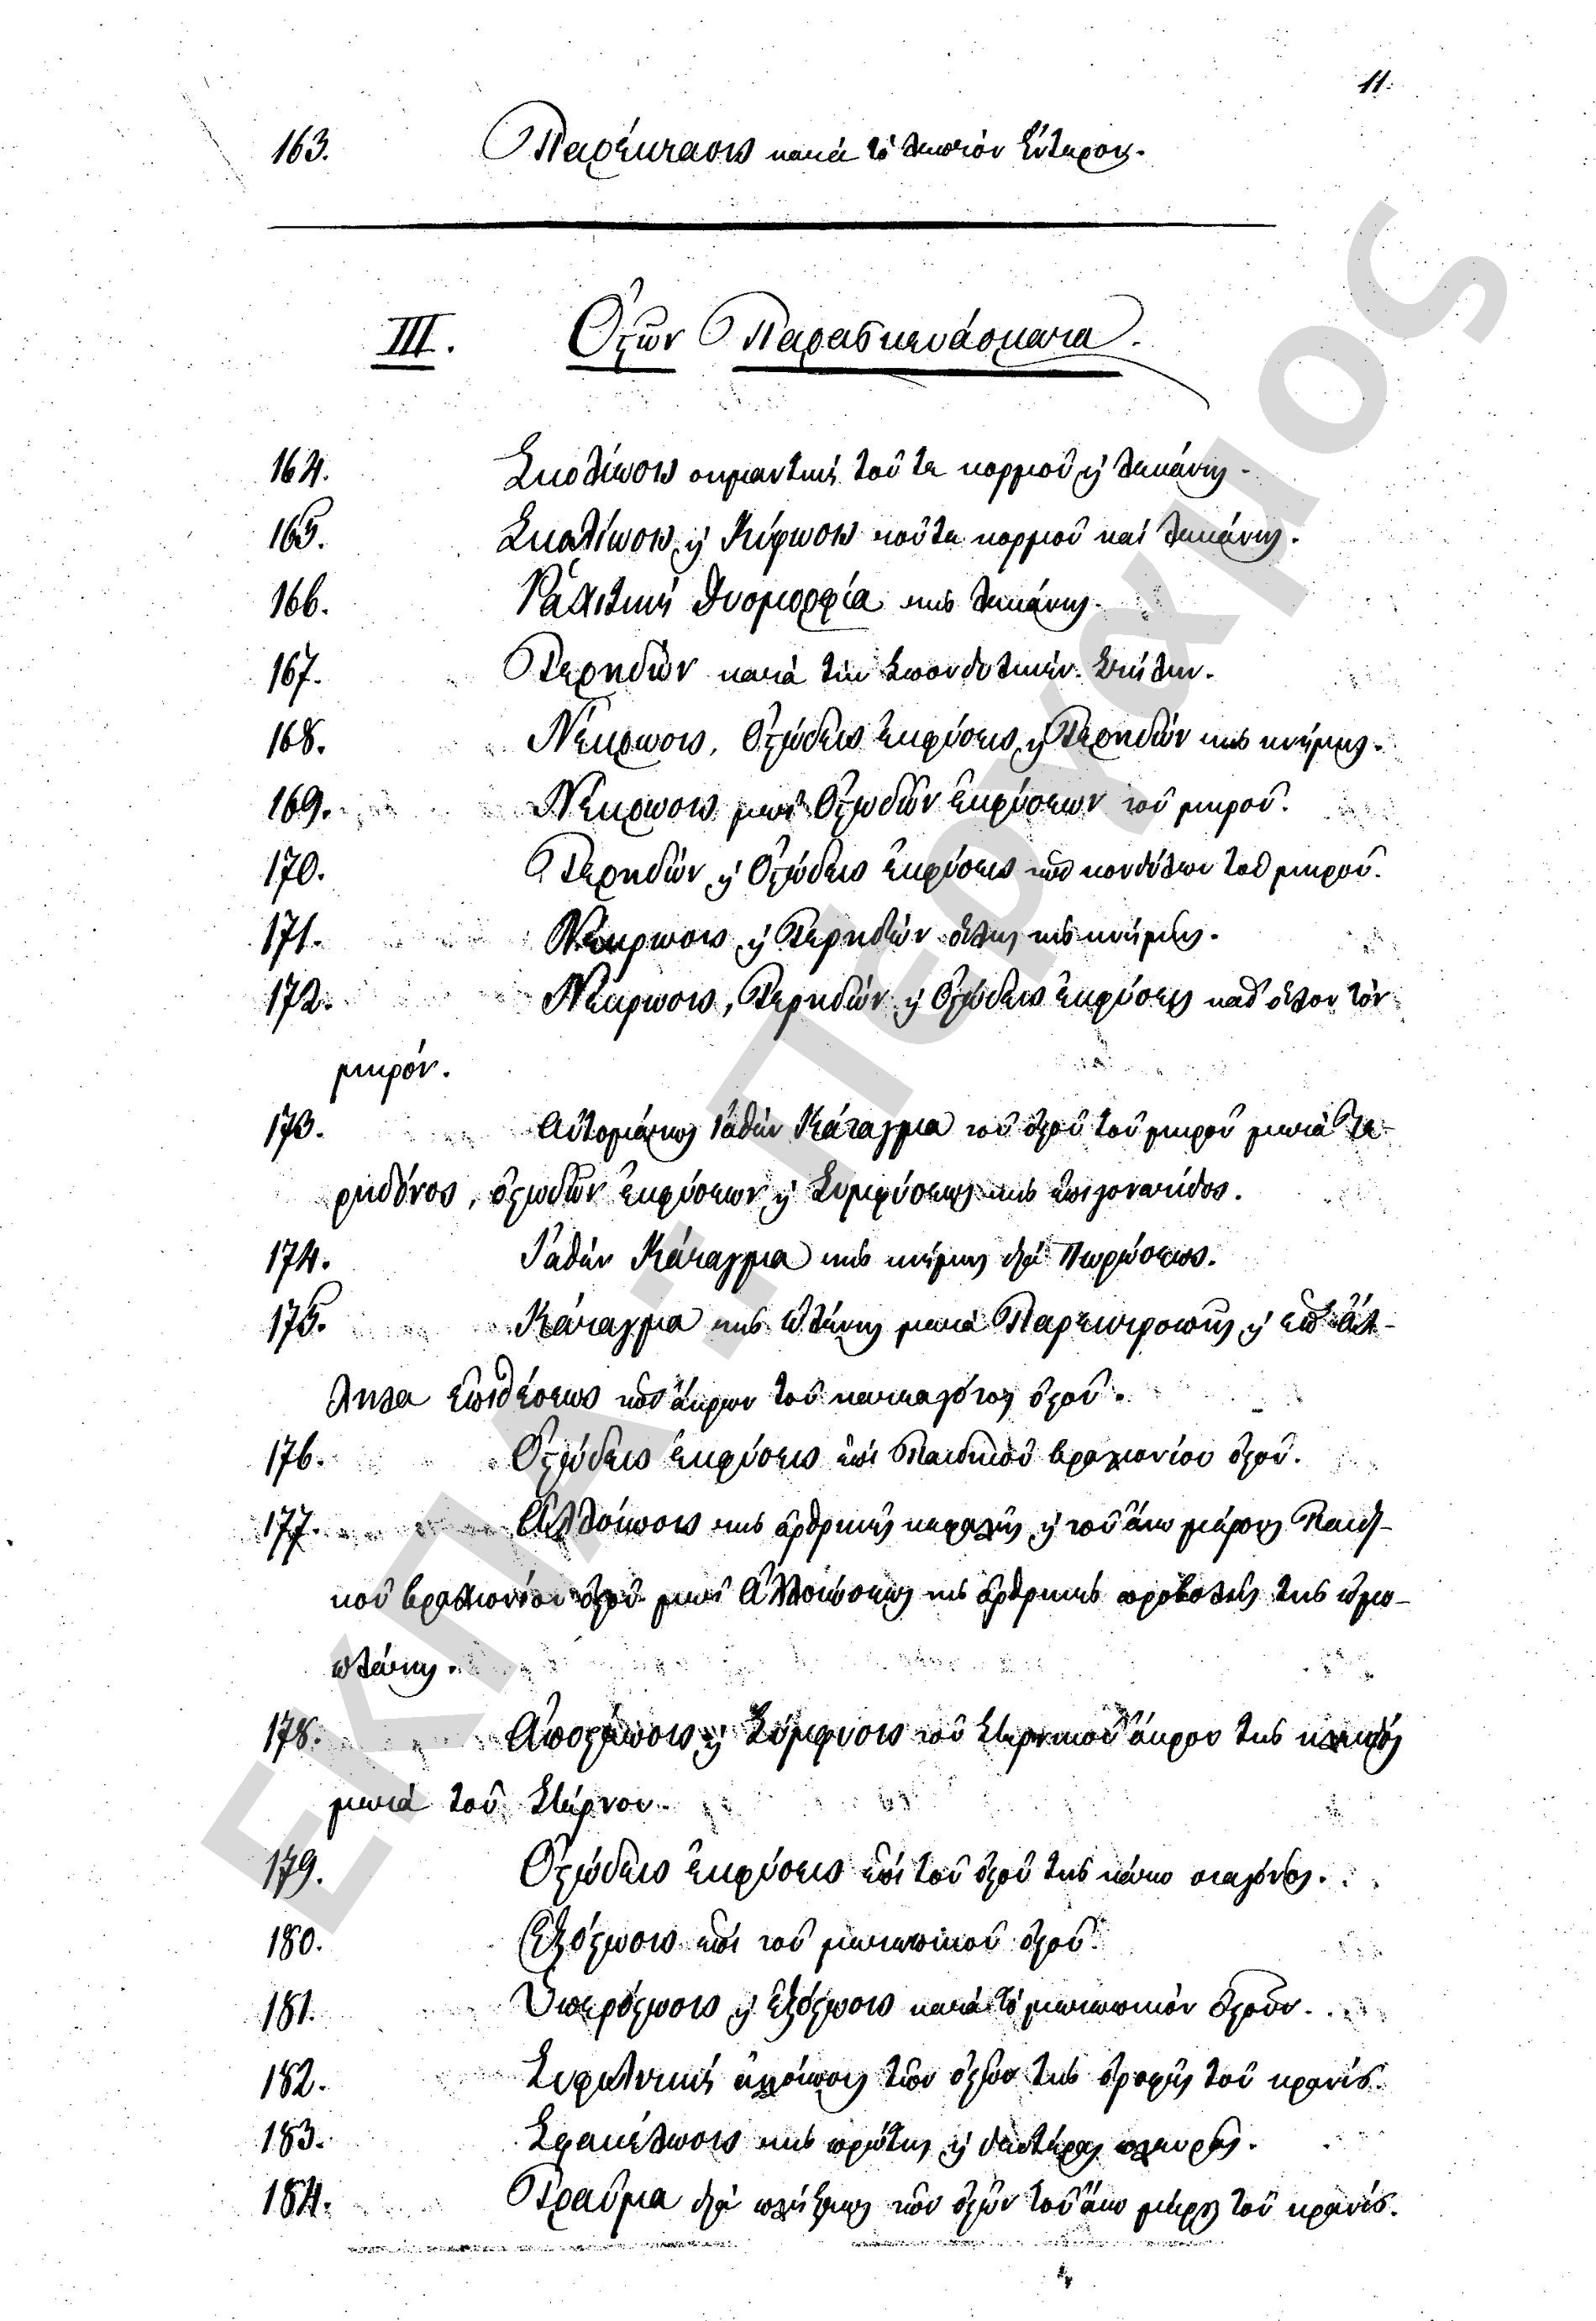 11.
163. Παρέκτασις κατὰ τὸ λεπτὸν Ἔντερον.
III. Ὀστῶν Παρασκευάσματα.
164. Σκολίωσις σημαντικὴ τοῦ τε κορμοῦ ἢ λεκάνης.
165. Σκολίωσις ἢ Κύφωσις τοῦ τε κορμοῦ καὶ λεκάνης.
166. Ῥαχιτικὴ Δυσμορφία τῆς λεκάνης.
167. Τερηδὼν κατὰ τὴν Σπονδυλικὴν Στήλην.
168. Νέκρωσις, Ὀστώδεις ἐκφύσεις ἢ Τερηδὼν τῆς κνήμης.
169. Νέκρωσις μετ' Ὀστωδῶν ἐκφύσεων τοῦ μηροῦ.
170. Τερηδὼν ἢ Ὀστώδεις ἐκφύσεις τῶν κονδύλων τοῦ μηροῦ.
171. Νέκρωσις ἢ Τερηδὼν ὅλης τῆς κνήμης.
172. Νέκρωσις, Τερηδὼν ἢ Ὀστώδεις ἐκφύσεις καθ' ὅλον τὸν
μηρόν.
173. Αὐτομάτως Ἰαθὲν Κάταγμα τοῦ ὀστοῦ τοῦ μηροῦ μετὰ Τε-
ρηδόνος, ὀστωδῶν ἐκφύσεων ἢ Συμφύσεως τῆς ἐπιγονατίδος.
174. Ἰαθὲν Κάταγμα τῆς κνήμης διὰ Πωρώσεως.
175. Κάταγμα τῆς ὠλένης μετὰ Παρεκτροπῆς ἢ ἐπ' Ἀλ-
ληλα ἐπιθέσεως τῶν ἄκρων τοῦ κατεαγότος ὀστοῦ.
176. Ὀστώδεις ἐκφύσεις ἐπὶ Παιδικοῦ βραχιονίου ὀστοῦ.
177. Ἀλλοίωσις τῆς ἀρθρικῆς κεφαλῆς ἢ τοῦ ἄνω μέρους Παιδι-
κοῦ βραχιονίου ὀστοῦ μετ' Ἀλλοιώσεως τῆς ἀρθρικῆς προβολῆς τῆς ὠμο-
πλάτης.
178. Ἀποστέωσις ἢ Σύμφυσις τοῦ Στερνικοῦ ἄκρου τῆς κλειδὸς
μετὰ τοῦ Στέρνου.
179. Ὀστώδεις ἐκφύσεις ἐπὶ τοῦ ὀστοῦ τῆς κάτω σιαγόνος.
180. Ἐξόστωσις ἐπὶ τοῦ μετωπικοῦ ὀστοῦ.
181. Ὑπερόστωσις ἢ Ἐξόστωσις κατὰ τὸ μετωπικὸν ὀστοῦν.
182. Συφιλιτικὴ ἀλλοίωσις τῶν ὀστῶν τῆς ὀροφῆς τοῦ κρανίου.
183. Σφακέλωσις τῆς πρώτης ἢ δευτέρας πλευρᾶς.
184. Τραῦμα διὰ πλήξεως τῶν ὀστῶν τοῦ ἄνω μέρους τοῦ κρανίου.